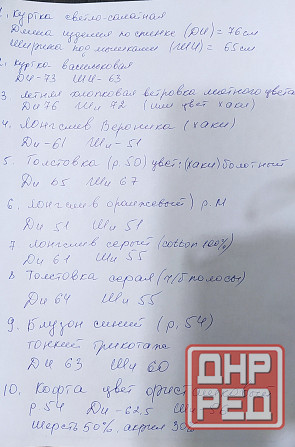 1. Куртка светло-салатная
Длина изделия по спинке (Ди) = 76см
Ширина под мышками (Ши) = 65см
2. Куртка васильковая
Ди-73 Ши-63
3 летняя хлопковая ветровка мятного цвета
Ди 76 Ши 72 (или цвет хаки)
4. Лонгслив Вероника (хаки)
Ди-61 Ши-51
5. Толстовка (р.50) цвет: (хаки) болотный
Ди 65 Ши 67
6. Лонгслив оранжевый р.М
Ди 51 Ши 51
7 Лонгслив серый (cotton 100%)
Ди 61 Ши 55
8 Толстовка серая (ч/б полосы)
Ди 64 Ши 55
9. Блузон синий (р.54)
тонкий трикотаж
Ди 63 Ши 60
10. Кофта цвет
р 54 Ди-62,5
шерсть 50%, акрил 30%
ДНР
РЕД